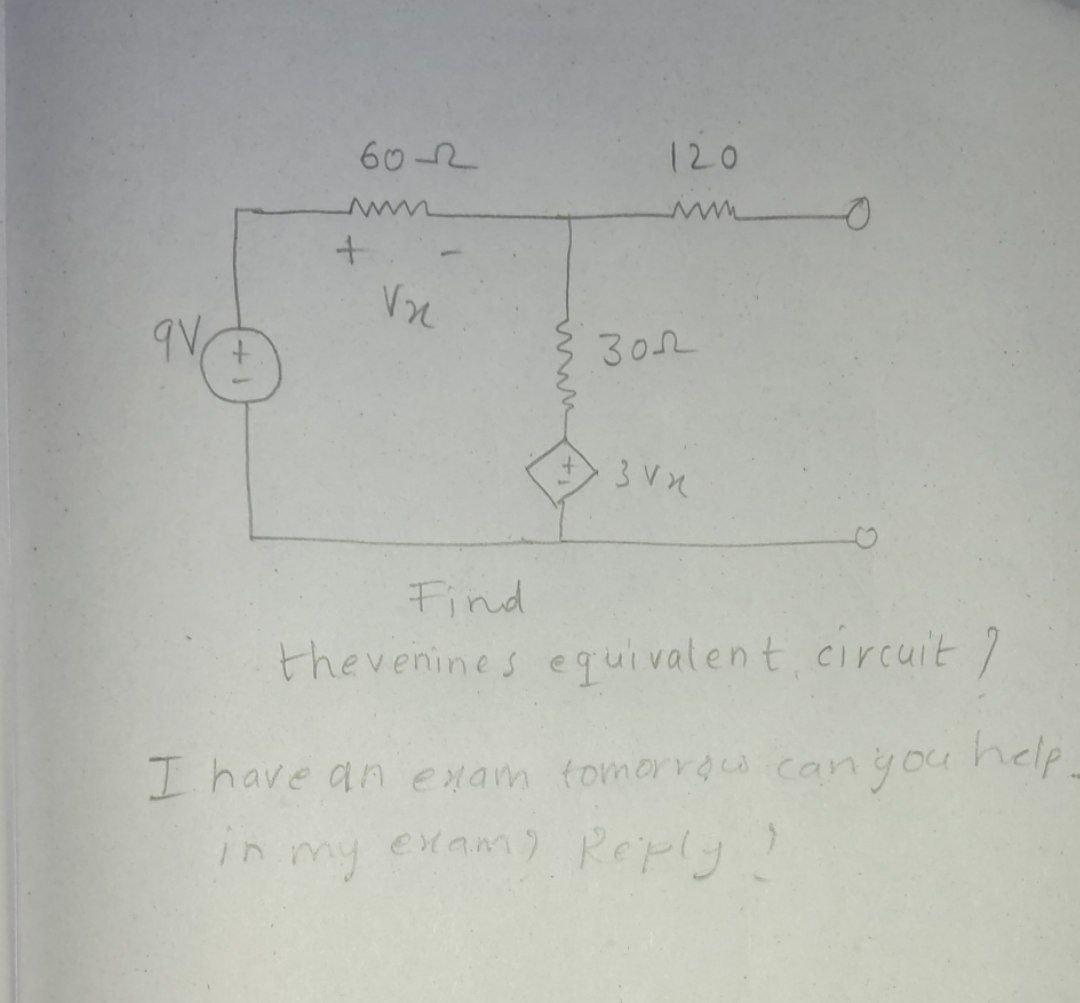 60Ω 120
+ -
Vx
9V
+
-
30Ω
+
-
3Vx
Find
thevenines equivalent circuit?
I have an exam tomorrow can you help
in my exam? Reply!